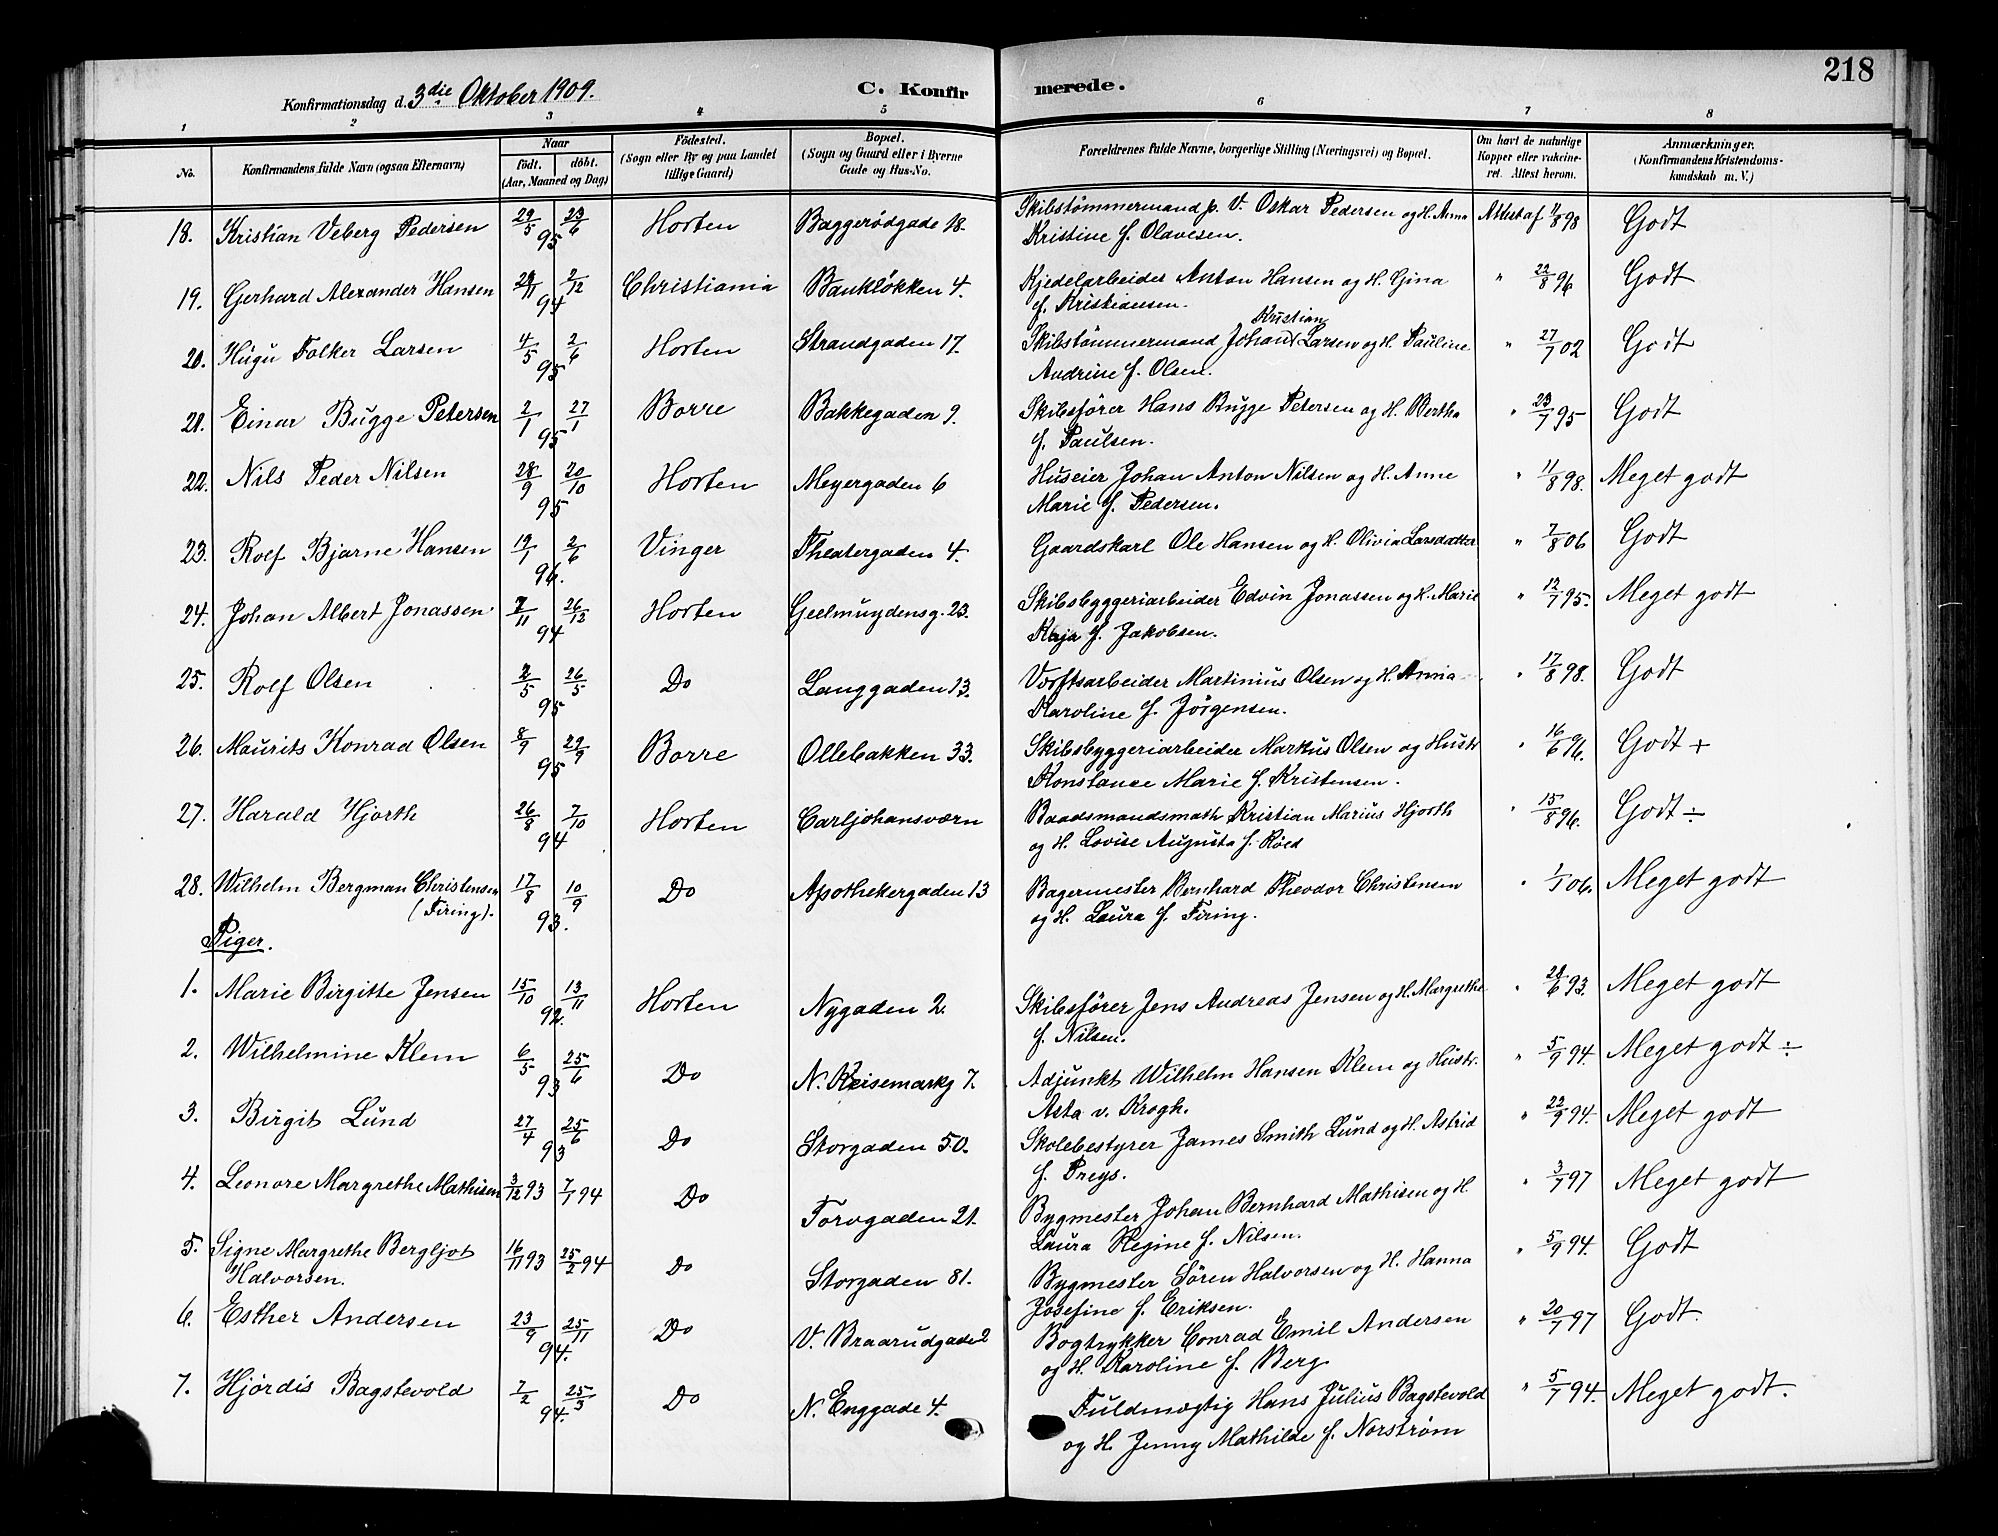 218
Konfirmationsdag d. 3die Oktober 1909.
C. Konfirmerede.
1 2 3 4 5 6 7 8
No.
Konfirmandens fulde Navn (ogsaa Efternavn)
Naar
födt. döbt.
(Aar, Maaned og Dag)
Födested.
(Sogn eller By og paa Landet
tillige Gaard)
Bopæl.
(Sogn og Gaard eller i Byerne
Gade og Hus-No.
Forældrenes fulde Navne, borgerlige Stilling (Næringsvei) og Bopæl.
Om havt de naturlige
Kopper eller vakcine-
ret. Attest herom.
Anmærkninger.
(Konfirmandens Kristendoms-
kundskab m. V.)
18. Kristian Veberg Pedersen 29/5 23/6 95 Horten Baggerødgade 18. Skibstømmermand p. V. Oskar Pedersen og H. Anna Attest af 11/8 98 Godt
Kristine f. Olavesen.
19. Gerhard Alexander Hansen 29/11 2/12 94 Christiania Bankløkken 4. Kjedelarbeider Anton Hansen og H. Gina " 22/8 96 Godt
f. Kristiansen.
20. Hugu Folker Larsen 4/5 2/6 95 Horten Strandgaden 17. Skibstømmermand Johan Kristian Larsen og H. Pauline " 27/7 02 Godt
Andrine f. Olsen.
21. Einar Bugge Petersen 2/1 27/1 95 Borre Bakkegaden 9. Skibsfører Hans Bugge Petersen og H. Bertha " 23/7 95 Godt
f. Paulsen.
22. Nils Peder Nilsen 28/9 20/10 95 Horten Meyergaden 6 Huseier Johan Anton Nilsen og H. Anne " 11/8 98. Meget godt
Marie f. Pedersen.
23. Rolf Bjarne Hansen 19/1 2/6 96. Vinger Theatergaden 4. Gaardskarl Ole Hansen og H. Olivia Larsdatter " 7/8 06 Godt
24. Johan Albert Jonassen 7/11 26/12 94 Horten Geelmuydensg. 23. Skibsbyggeriarbeider Edvin Jonassen og H. Marie " 12/7 95. Meget godt
Kaja f. Jakobsen.
25. Rolf Olsen 2/5 26/5 95 Do Langgaden 13. Værftsarbeider Martinius Olsen og H. Anna " 17/8 98. Godt
Karoline f. Jørgensen.
26. Maurits Konrad Olsen 8/9 29/9 95 Borre Ollebakken 33. Skibsbyggeriarbeider Markus Olsen og Hustr " 16/6 96. Godt +
Konstance Marie f. Kristensen.
27. Harald Hjorth 26/8 7/10 94 Horten Carljohansværn Baadsmandsmath Kristian Marius Hjorth " 15/8 96. Godt ÷
og H. Lovise Augusta f. Røed
28. Wilhelm Bergman Christensen 17/8 10/9 93. Do Apothekergaden 13 Bagermester Bernhard Theodor Christensen " 1/1 06. Meget godt
(Firing). og H. Laura f. Firing.
Piger.
1. Marie Birgitte Jensen 15/10 13/11 92. Horten Nygaden 2. Skibsfører Jens Andreas Jensen og H. Margrethe " 28/6 93. Meget godt
f. Nilsen.
2. Wilhelmine Klem 6/5 25/6 93 Do N. Keisemarkg 7. Adjunkt Wilhelm Hansen Klem og Hustr. " 5/9 94. Meget godt ÷
Asta v. Krogh.
3. Birgit Lund 27/4 25/6 93 Do Storgaden 50. Skolebestyrer James Smith Lund og H. Astrid " 22/9 94. Meget godt
f. Preys.
4. Leonore Margrethe Mathisen 3/12 93 7/1 94 Do Torvgaden 21. Bygmester Johan Bernhard Mathisen og H. " 3/7 97 Meget godt
Laura Regine f. Nilsen.
5. Signe Margrethe Bergljot 16/11 93 25/2 94 Do Storgaden 81. Bygmester Søren Halvorsen og H. Hanna " 5/9 94. Godt
Halvorsen. Josefine f. Eriksen.
6. Esther Andersen 23/9 25/11 94. Do V. Braarudgade 2 Bogtrykker Conrad Emil Andersen " 20/7 97 Godt.
og H. Karoline f. Berg
7. Hjørdis Bagstevold 7/2 25/3 94. Do N. Enggade 4. Fuldmægtig Hans Julius Bagstevold " 5/7 94. Meget godt.
og H Jenny Mathilde f. Norstrøm